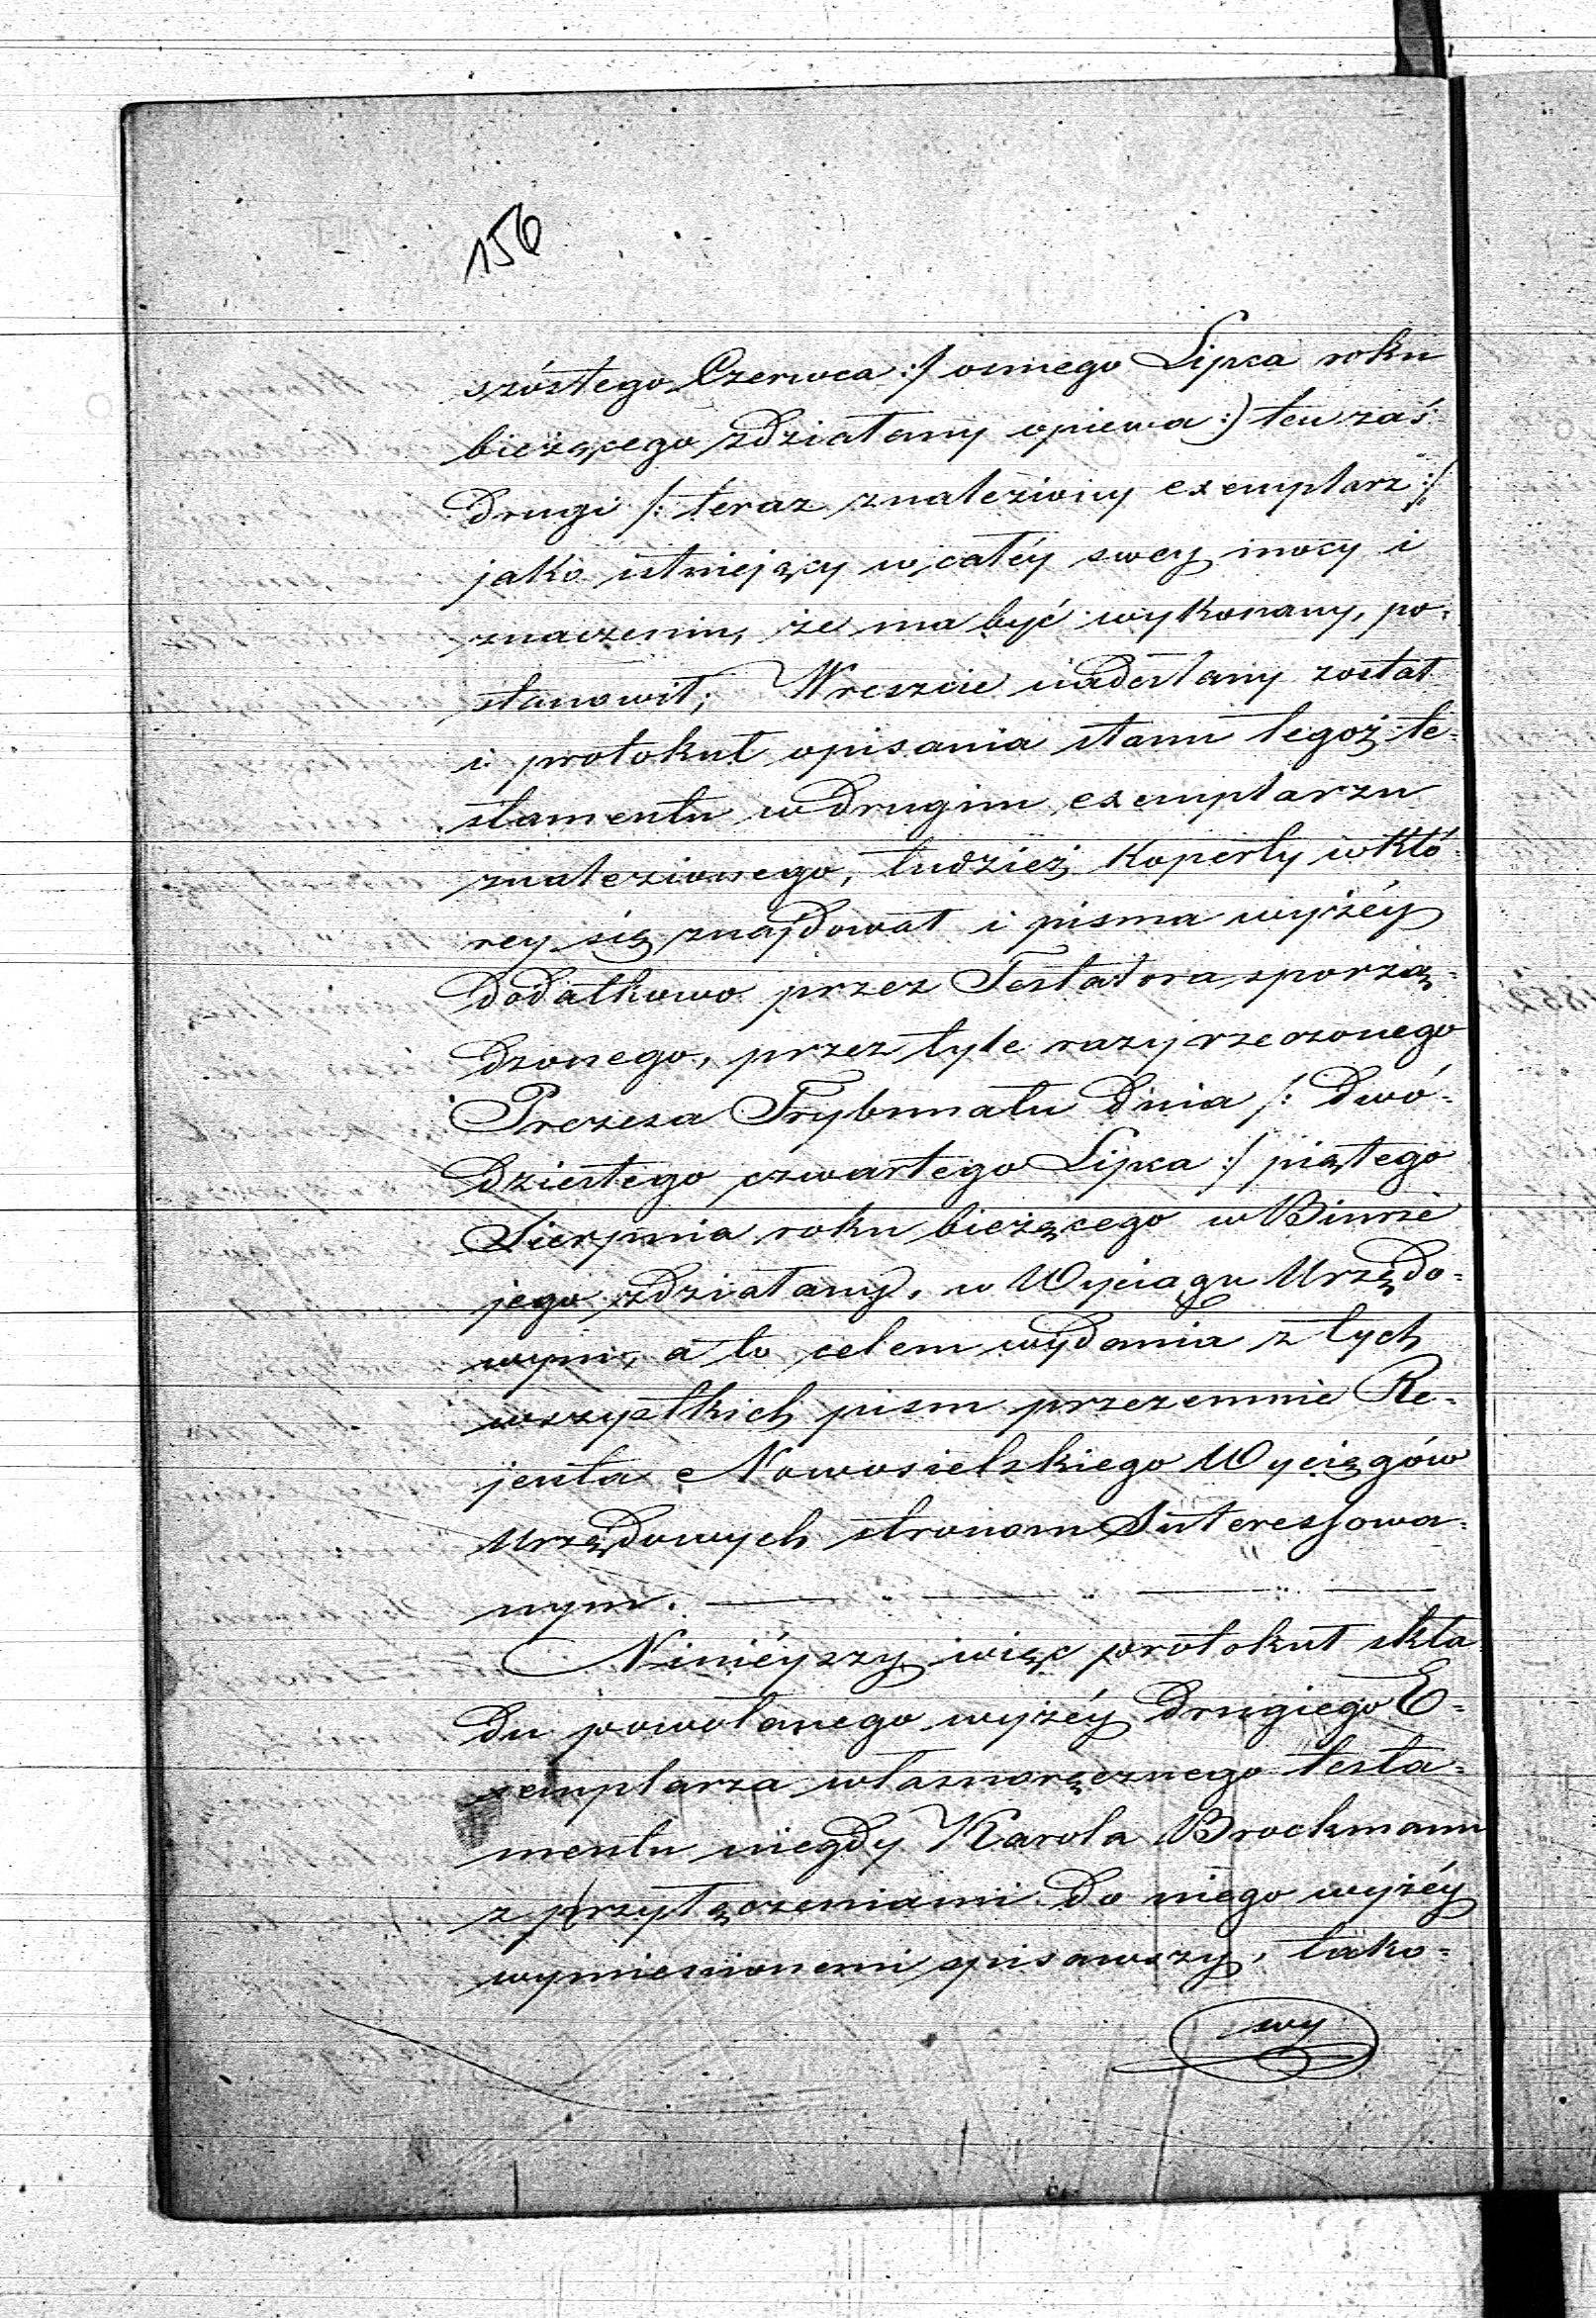 156
szóstego Czerwca :/ osmego Lipca roku
bieżącego zdziałany opiewa :) ten zaś
drugi /: teraz znaleziony exemplarz :/
jako istniejący w całéy swey mocy i
znaczeniu, że ma być wykonany, po-
stanowił; Wreszcie nadesłany został
i protokuł opisania stanu tegoż te-
stamentu w drugim exemplarzu
znalezionego, tudzież Koperty w któ-
rey się znajdował i pisma wyżéy
dodatkowo przez Testatora sporzą-
dzonego, przez tyle razy rzeczonego
Prezesa Trybunału dnia /: dwó-
dziestego czwartego Lipca :/ piątego
Sierpnia roku bieżącego w Biurze
jego zdziałany, w Wyciągu Urzędo-
wym, a to celem wydania z tych
wszystkich pism przezemnie Re-
jenta Nowosielskiego Wyciągów
Urzędowych stronom Interessowa-
nym.
Niniéyszy więc protokuł skła-
du powołanego wyżéy drugiego E-
xemplarza własnoręcznego testa-
mentu niegdy Karola Brockmann
z przyłączeniami do niego wyżéy
wymienionemi spisawszy, tako-
wy